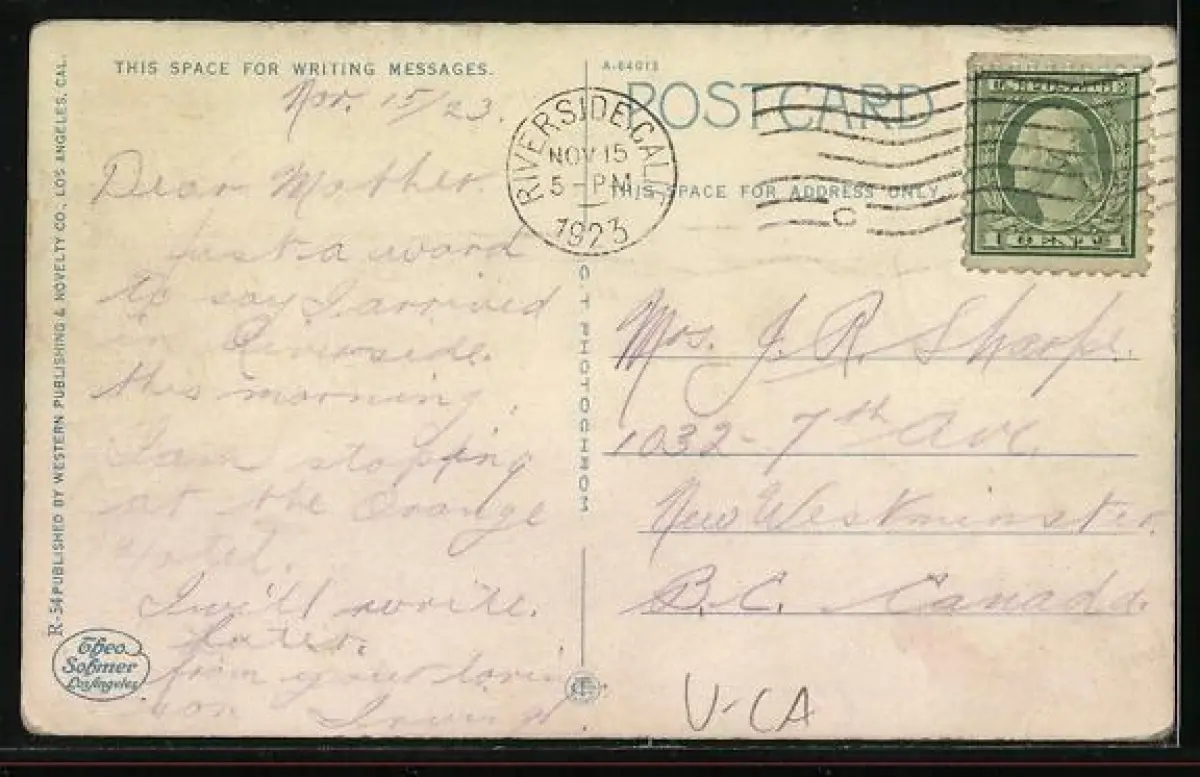 THIS SPACE FOR WRITING MESSAGES.
Nov. 15/23.
Dear Mother.
Just a word
to say I arrived
in Riverside.
this morning.
I am stopping
at the Orange
Hotel.
I will write
later.
from your loving
son
R-54 PUBLISHED BY WESTERN PUBLISHING & NOVELTY CO., LOS ANGELES, CAL.
Theo. Sohmer
Los Angeles
C.T. PHOTOCHROM
A-64013
POSTCARD
THIS SPACE FOR ADDRESS ONLY.
RIVERSIDE, CALIF.
NOV 15
5 - PM
1923
C
Mrs. J. R. Sharpe.
1032 - 7th Ave.
New Westminster.
B.C. Canada.
V-CA